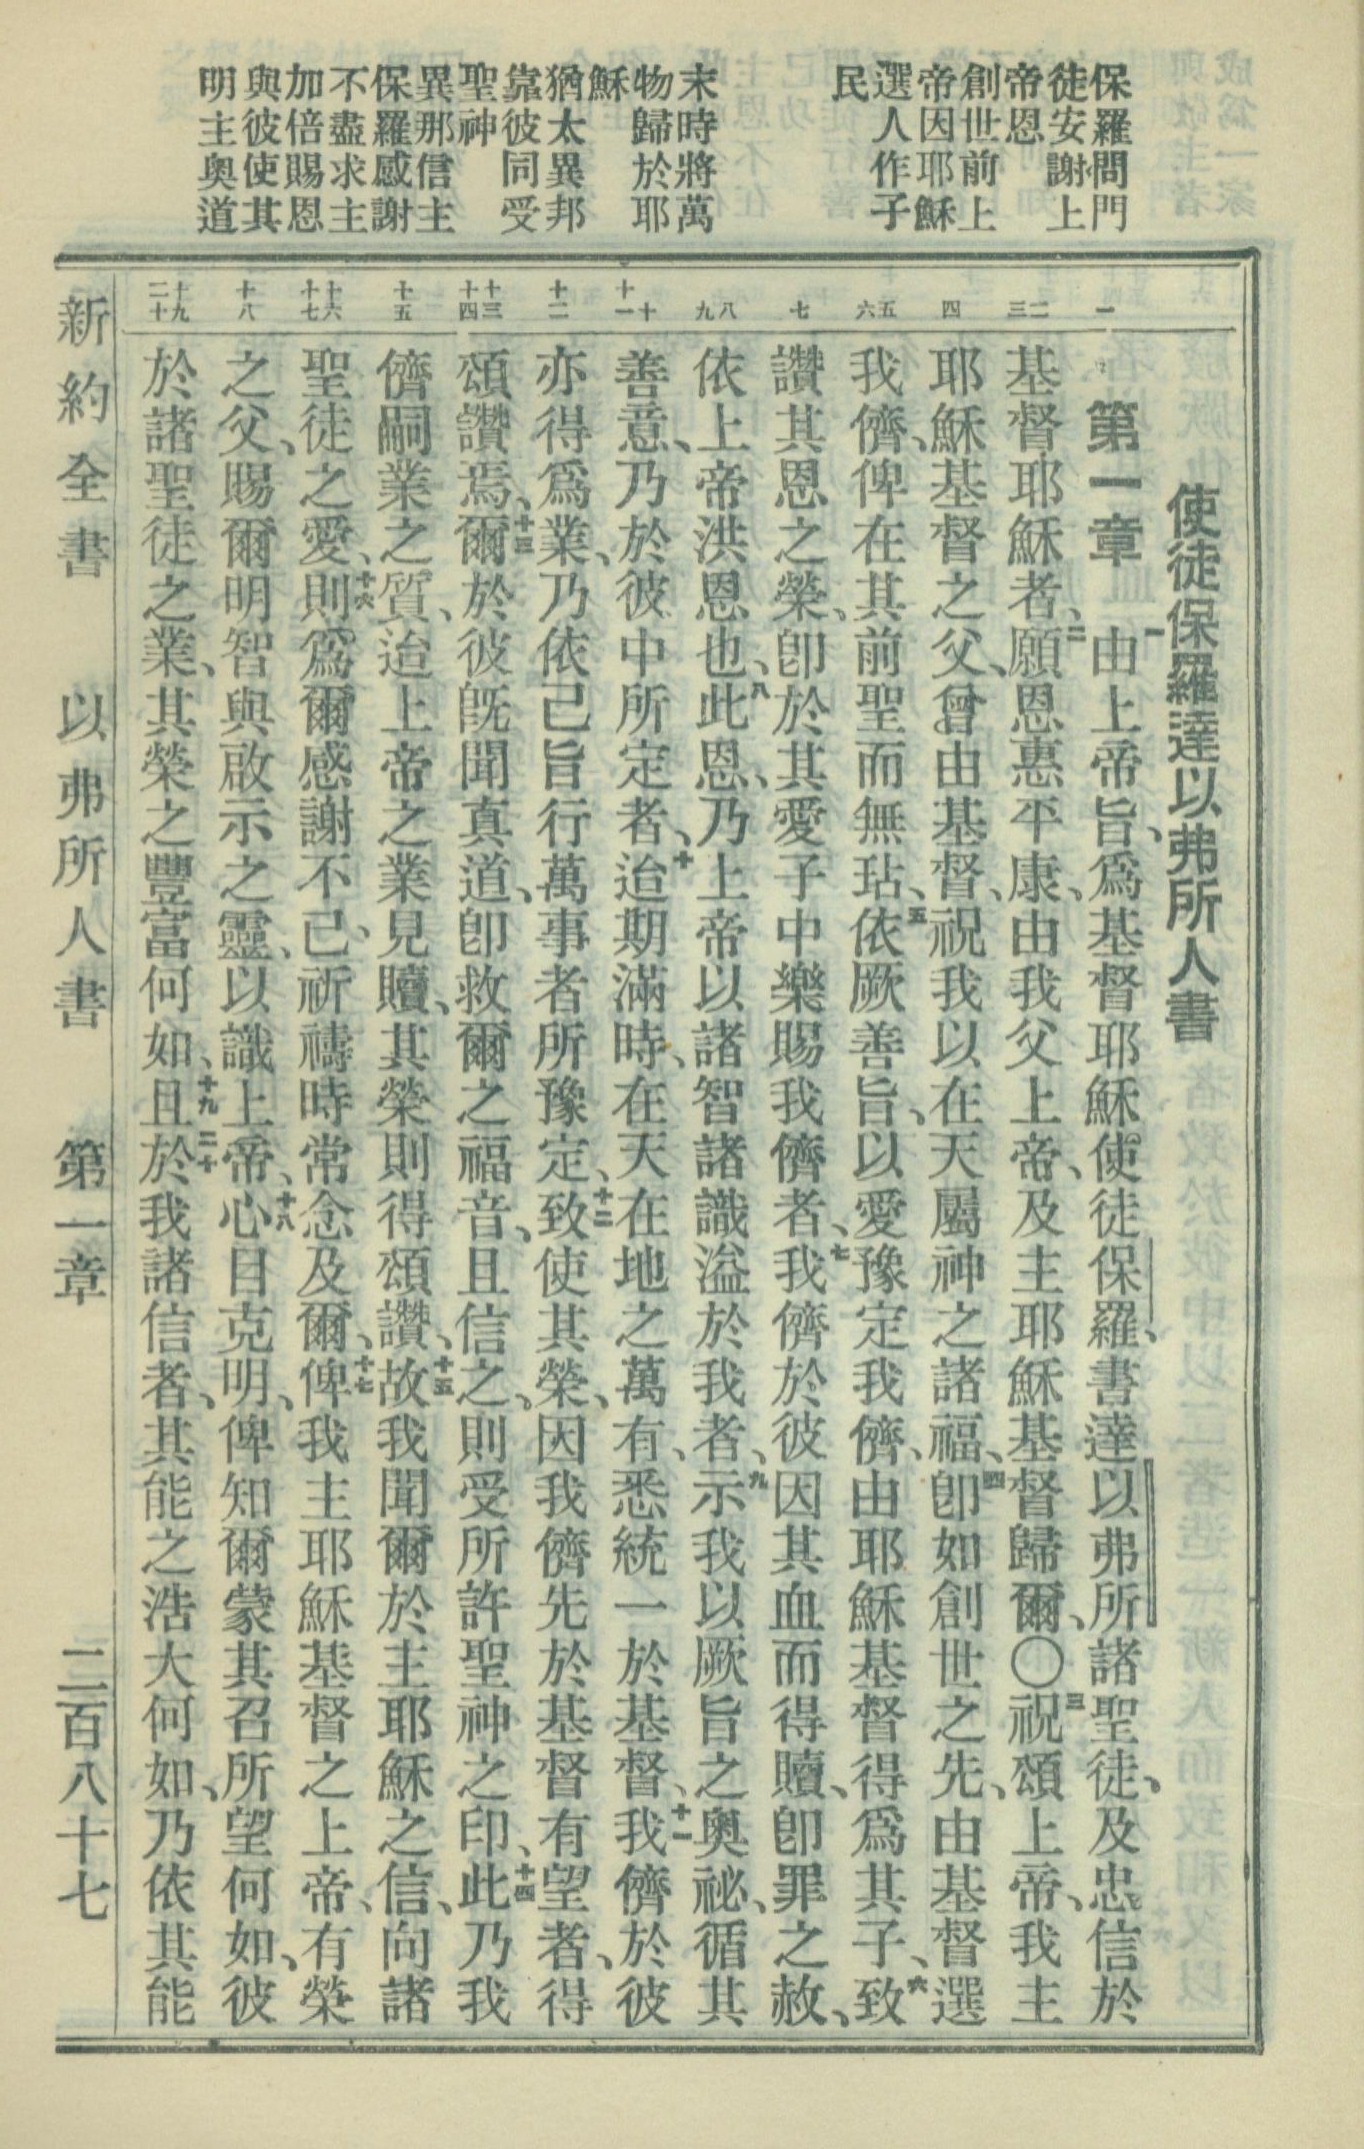 保羅問門
徒安謝上
帝恩
創世前上
帝因耶穌
選人作子
民
末時將萬
物歸於耶
穌
猶太異邦
靠彼同受
聖神
異那信主
保羅感謝
不盡求主
加倍賜恩
與彼使其
明主奧道
一
二 三
四
五 六
七
八 九
十 十一
十二
十三 十四
十五
十六 十七
十八
十九 二十
使徒保羅達以弗所人書
第一章 一由上帝旨、爲基督耶穌使徒保羅、書達以弗所諸聖徒、及忠信於
基督耶穌者、二願恩惠平康、由我父上帝、及主耶穌基督歸爾、〇三祝頌上帝、我主
耶穌基督之父、曾由基督、祝我以在天屬神之諸福、四卽如創世之先、由基督選
我儕、俾在其前聖而無玷、五依厥善旨、以愛豫定我儕、由耶穌基督得爲其子、六致
讚其恩之榮、卽於其愛子中樂賜我儕者、七我儕於彼因其血而得贖、卽罪之赦、
依上帝洪恩也、八此恩、乃上帝以諸智諸識溢於我者、九示我以厥旨之奧祕、循其
善意、乃於彼中所定者、十迨期滿時、在天在地之萬有、悉統一於基督、十一我儕於彼
亦得爲業、乃依己旨行萬事者所豫定、十二致使其榮、因我儕先於基督有望者、得
頌讚焉、十三爾於彼旣聞眞道、卽救爾之福音、且信之、則受所許聖神之印、十四此乃我
儕嗣業之質、迨上帝之業見贖、其榮則得頌讚、十五故我聞爾於主耶穌之信、向諸
聖徒之愛、十六則爲爾感謝不已、祈禱時常念及爾、十七俾我主耶穌基督之上帝、有榮
之父、賜爾明智與啟示之靈、以識上帝、十八心目克明、俾知爾蒙其召所望何如、彼
於諸聖徒之業、其榮之豐富何如、十九且於二十我諸信者、其能之浩大何如、乃依其能
新約全書 以弗所人書 第一章 二百八十七